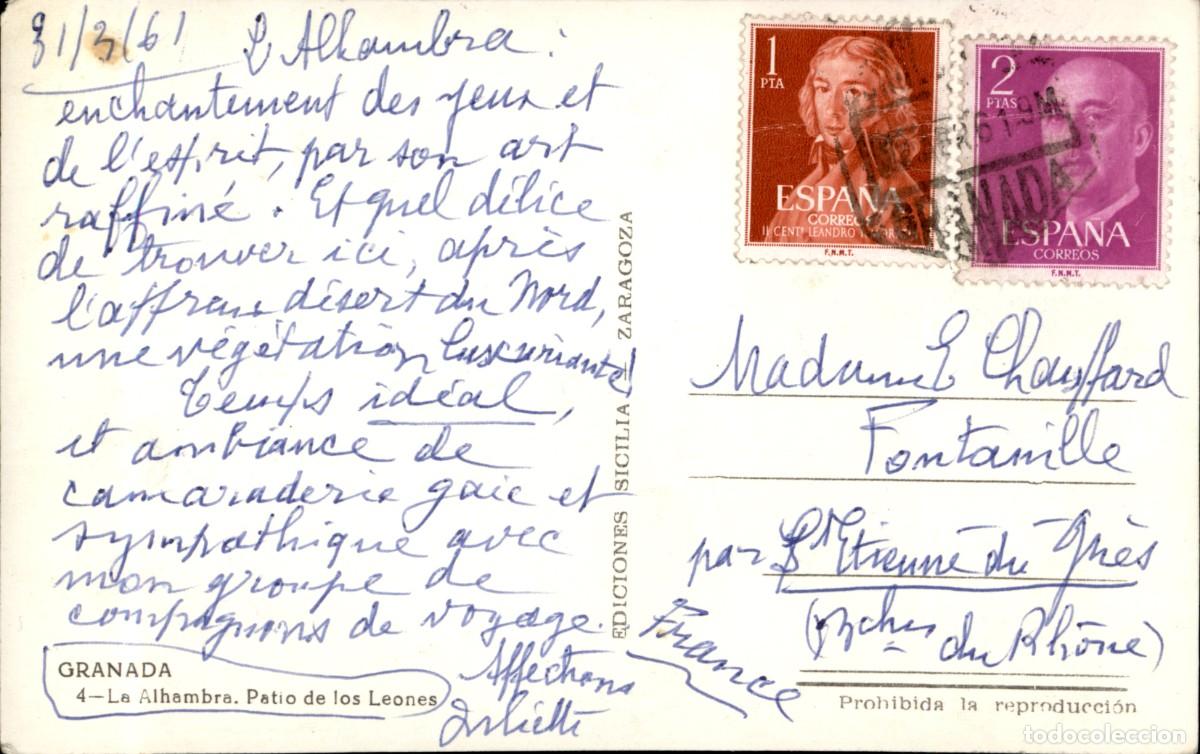 31/3/61 L'Alhambra :
enchantement des yeux et
de l'esprit, par son art
raffiné. Et quel délice
de trouver ici, après
l'affreux désert du Nord,
une végétation luxuriante!
Temps idéal,
et ambiance de
camaraderie gaie et
sympathique avec
mon groupe de
compagnons de voyage.
Affections
Juliette
GRANADA
4—La Alhambra. Patio de los Leones
EDICIONES SICILIA ZARAGOZA
1
PTA
ESPAÑA
CORREOS
II CENTº LEANDRO
F.N.M.T.
2
PTAS
ESPAÑA
CORREOS
F.N.M.T.
GRANADA
Madame E Chauffard
Fontanille
par St Etienne du Grès
(Bches du Rhône)
France
Prohibida la reproducción
todocoleccion